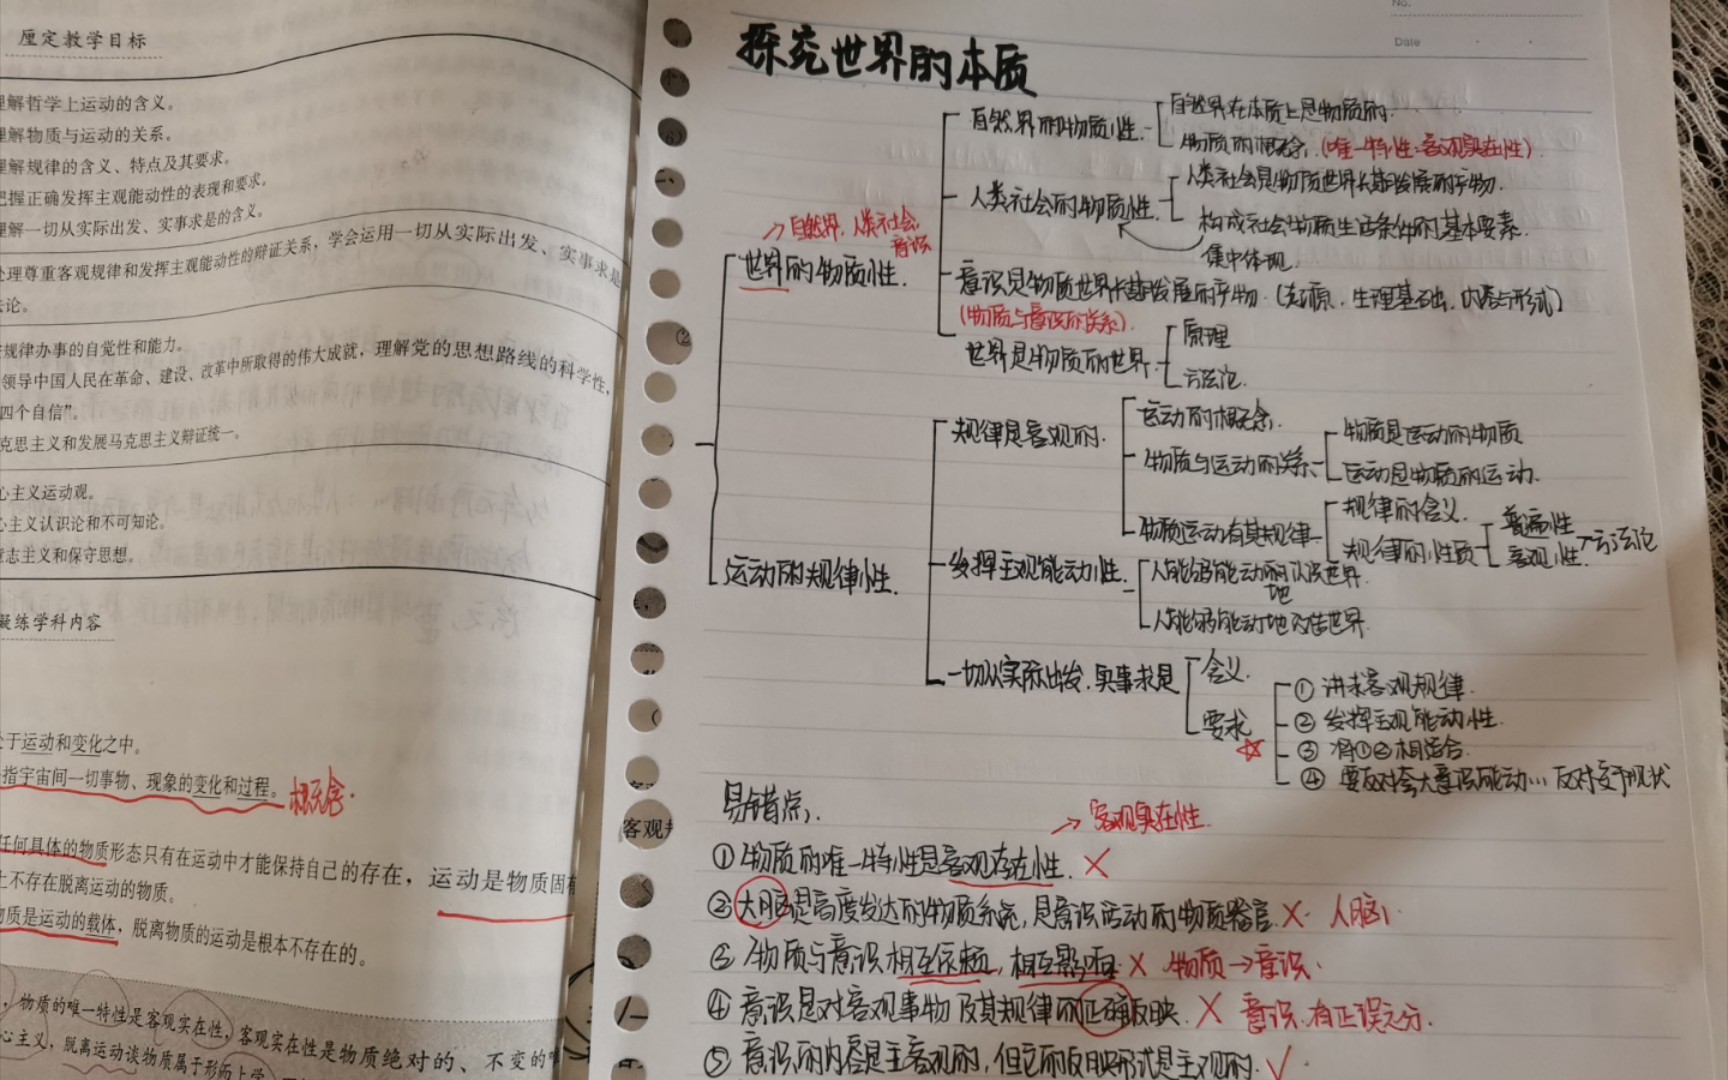 厘定教学目标
理解哲学上运动的含义。
理解物质与运动的关系。
理解规律的含义、特点及其要求。
把握正确发挥主观能动性的表现和要求。
理解一切从实际出发、实事求是的含义。
处理尊重客观规律和发挥主观能动性的辩证关系，学会运用一切从实际出发、实事求是
法论。
规律办事的自觉性和能力。
领导中国人民在革命、建设、改革中所取得的伟大成就，理解党的思想路线的科学性，
四个自信”。
克思主义和发展马克思主义辩证统一。
心主义运动观。
心主义认识论和不可知论。
意志主义和保守思想。
凝练学科内容
于运动和变化之中。
指宇宙间一切事物、现象的变化和过程。 概念.
任何具体的物质形态只有在运动中才能保持自己的存在，运动是物质固有
上不存在脱离运动的物质。
物质是运动的载体，脱离物质的运动是根本不存在的。
，物质的唯一特性是客观实在性，客观实在性是物质绝对的、不变的唯
心主义，脱离运动谈物质属于形而上学
客观
No.
Date
探究世界的本质
世界的物质性.
→自然界. 人类社会. 意识
自然界的物质性.
自然界在本质上是物质的.
物质的概念. (唯一特性:客观实在性).
人类社会的物质性.
人类社会是物质世界长期发展的产物.
构成社会物质生活条件的基本要素.
集中体现.
意识是物质世界长期发展的产物. (起源. 生理基础. 内容与形式)
(物质与意识的关系).
世界是物质的世界.
原理
方法论.
运动的规律性.
规律是客观的.
运动的概念.
物质与运动的关系
物质是运动的物质
运动是物质的运动.
物质运动有其规律
规律的含义.
规律的性质
普遍性
客观性.→方法论
发挥主观能动性.
人能够能动的认识世界.
地
人能够能动地改造世界.
一切从实际出发. 实事求是
含义.
要求
☆
① 讲求客观规律.
② 发挥主观能动性.
③ 将①②相结合.
④ 要反对夸大意识能动… 反对安于现状
易错点.
→ 客观实在性.
① 物质的唯一特性是客观存在性. ×
② 大脑是高度发达的物质系统, 是意识活动的物质器官. ×. 人脑.
③ 物质与意识相互依赖, 相互影响. × 物质→意识.
④ 意识是对客观事物及其规律的正确反映. × 意识. 有正误之分.
⑤ 意识的内容是客观的, 但它的反映形式是主观的. √.